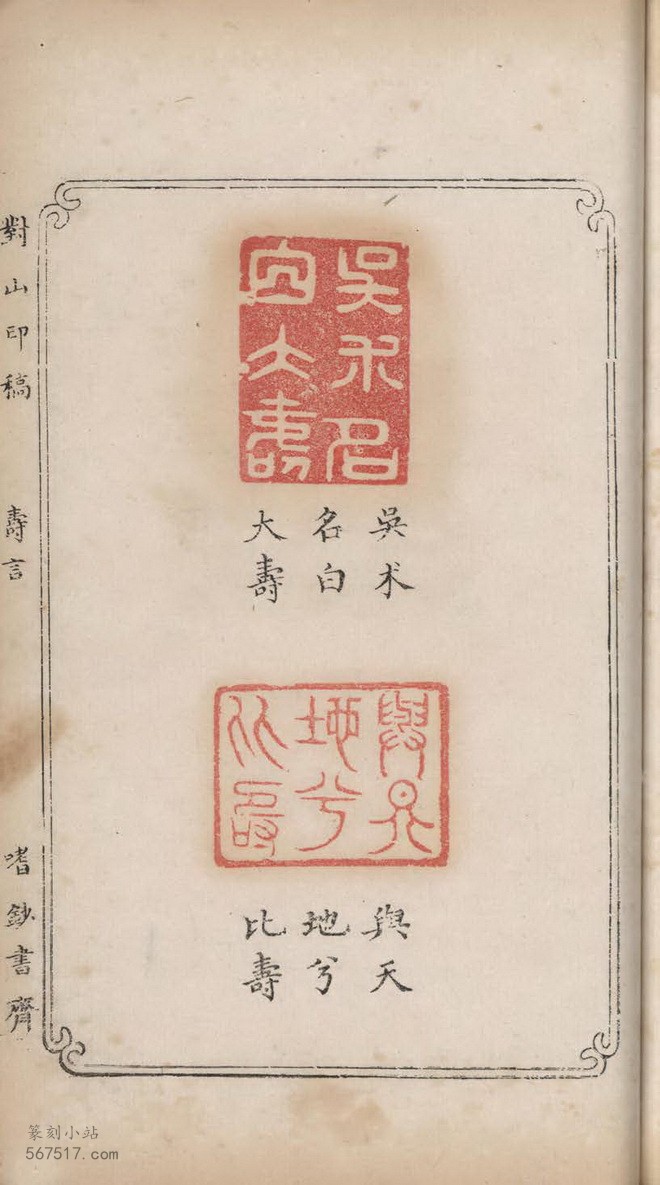 吳朮名
白大壽
吳朮
名白
大壽
與天
地兮
比壽
與天
地兮
比壽
對山印稿 壽言 嗜鈔書齋
篆刻小站
567517.com